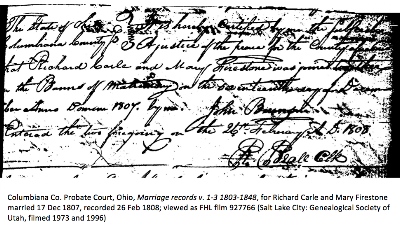 The State of Ohio hereby Certify by the
Columbiana County Justice of the peace for the County
that Richard Carle and Mary Firestone was joined
in the Banns of Matrimony on the seventeenth day of
1807. by me John
Entered the two foregoing on the 26th February A.D. 1808
Clk
Columbiana Co. Probate Court, Ohio, Marriage records v. 1-3 1803-1848, for Richard Carle and Mary Firestone
married 17 Dec 1807, recorded 26 Feb 1808; viewed as FHL film 927766 (Salt Lake City: Genealogical Society of
Utah, filmed 1973 and 1996)